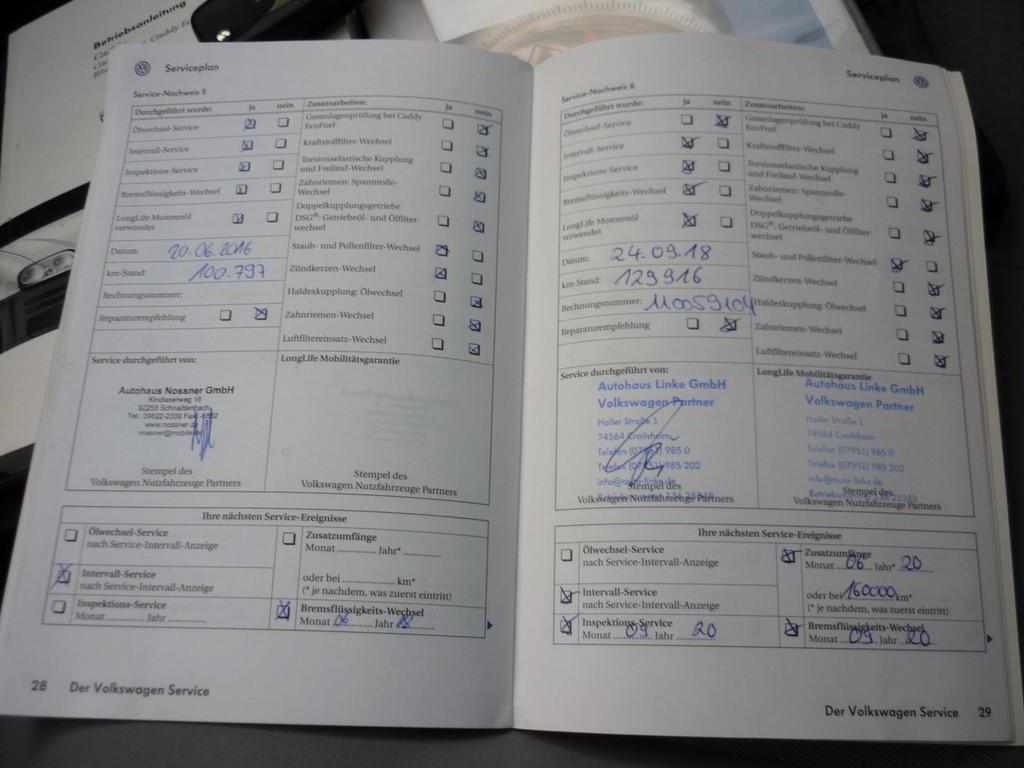 Betriebsanleitung
Serviceplan
Service-Nachweis 5
Durchgeführt wurde: ja nein Zusatzarbeiten: ja nein
Ölwechsel-Service Gasanlagenprüfung bei Caddy EcoFuel
Intervall-Service Kraftstofffilter-Wechsel
Inspektions-Service Torsionselastische Kupplung und Freilauf-Wechsel
Bremsflüssigkeits-Wechsel Zahnriemen: Spannrolle-Wechsel
LongLife Motorenöl verwendet Doppelkupplungsgetriebe DSG®: Getriebeöl- und Ölfilter-wechsel
Datum: 20.06.2016 Staub- und Pollenfilter-Wechsel
km-Stand: 100.797 Zündkerzen-Wechsel
Rechnungsnummer: Haldexkupplung: Ölwechsel
Reparaturempfehlung Zahnriemen-Wechsel
Luftfiltereinsatz-Wechsel
Service durchgeführt von: LongLife Mobilitätsgarantie
Autohaus Nossner GmbH
92253 Schnaittenbach
Stempel des
Volkswagen Nutzfahrzeuge Partners
Stempel des
Volkswagen Nutzfahrzeuge Partners
Ihre nächsten Service-Ereignisse
Ölwechsel-Service
nach Service-Intervall-Anzeige
Zusatzumfänge
Monat ............ Jahr* ............
Intervall-Service
nach Service-Intervall-Anzeige
oder bei ................ km*
(* je nachdem, was zuerst eintritt)
Inspektions-Service
Monat ............ Jahr ............
Bremsflüssigkeits-Wechsel
Monat 06 Jahr 18
28 Der Volkswagen Service
Serviceplan
Service-Nachweis 6
Durchgeführt wurde: ja nein Zusatzarbeiten: ja nein
Ölwechsel-Service Gasanlagenprüfung bei Caddy EcoFuel
Intervall-Service Kraftstofffilter-Wechsel
Inspektions-Service Torsionselastische Kupplung und Freilauf-Wechsel
Bremsflüssigkeits-Wechsel Zahnriemen: Spannrolle-Wechsel
LongLife Motorenöl verwendet Doppelkupplungsgetriebe DSG®: Getriebeöl- und Ölfilter-wechsel
Datum: 24.09.18 Staub- und Pollenfilter-Wechsel
km-Stand: 129916 Zündkerzen-Wechsel
Rechnungsnummer: 110059104 Haldexkupplung: Ölwechsel
Reparaturempfehlung Zahnriemen-Wechsel
Luftfiltereinsatz-Wechsel
Service durchgeführt von: LongLife Mobilitätsgarantie
Autohaus Linke GmbH
Volkswagen Partner
Haller Straße 1
74564 Crailsheim
Telefon (07951) 985 0
Telefax (07951) 985 202
info@auto-linke.de
Stempel des
Volkswagen Nutzfahrzeuge Partners
Autohaus Linke GmbH
Volkswagen Partner
Haller Straße 1
74564 Crailsheim
Telefon (07951) 985 0
Telefax (07951) 985 202
info@auto-linke.de
Stempel des
Volkswagen Nutzfahrzeuge Partners
Ihre nächsten Service-Ereignisse
Ölwechsel-Service
nach Service-Intervall-Anzeige
Zusatzumfänge
Monat 06 Jahr* 20
Intervall-Service
nach Service-Intervall-Anzeige
oder bei 160000 km*
(* je nachdem, was zuerst eintritt)
Inspektions-Service
Monat 09 Jahr 20
Bremsflüssigkeits-Wechsel
Monat 09 Jahr 20
Der Volkswagen Service 29